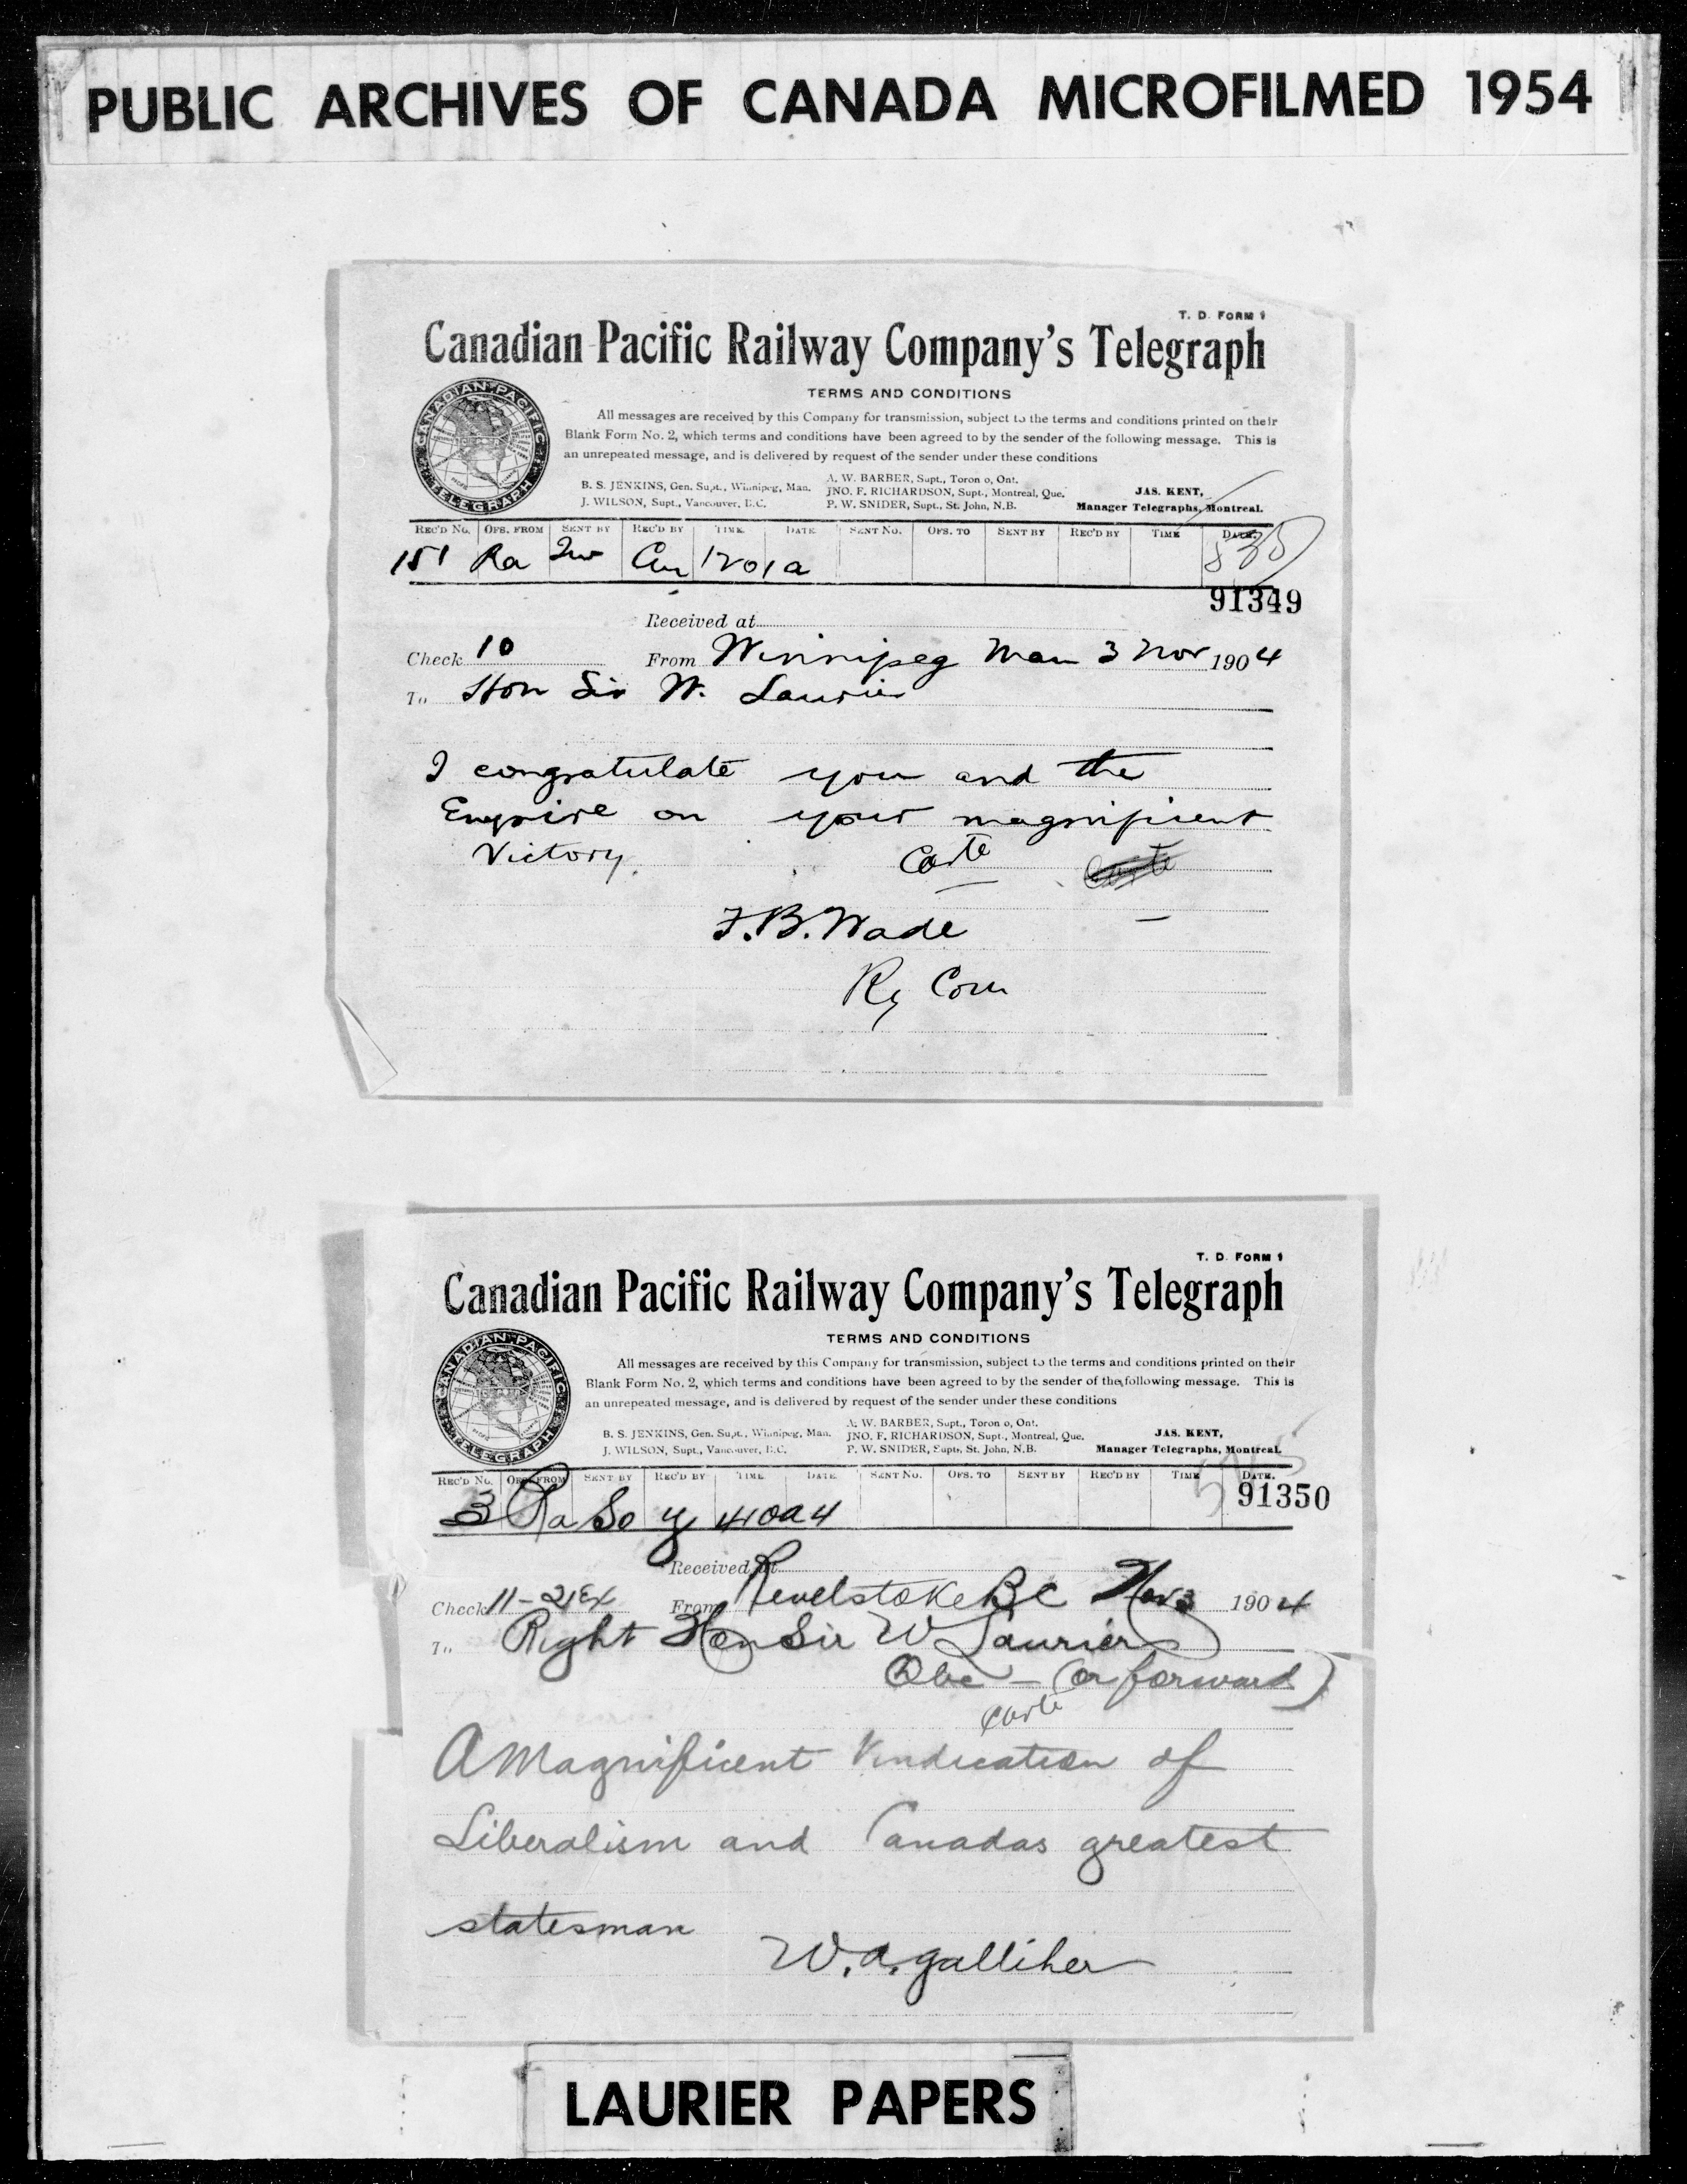 PUBLIC ARCHIVES OF CANADA MICROFILMED 1954
T. D. FORM 1
Canadian Pacific Railway Company's Telegraph
TERMS AND CONDITIONS
All messages are received by this Company for transmission, subject to the terms and conditions printed on their
Blank Form No. 2, which terms and conditions have been agreed to by the sender of the following message. This is
an unrepeated message, and is delivered by request of the sender under these conditions
CANADIAN PACIFIC TELEGRAPH
A. W. BARBER, Supt., Toron o, Ont.
B. S. JENKINS, Gen. Supt., Winnipeg, Man. JNO. F. RICHARDSON, Supt., Montreal, Que. JAS. KENT,
J. WILSON, Supt., Vancouver, B.C. P. W. SNIDER, Supt., St. John, N.B. Manager Telegraphs, Montreal.
REC'D No. OFS. FROM SENT BY REC'D BY TIME DATE SENT No. OFS. TO SENT BY REC'D BY TIME DATE
151 Ra 1201a
91349
Received at
Check 10 From Winnipeg Man 3 Nov 1904
To Hon Sir W. Laurier
I congratulate you and the
Empire on your magnificent
Victory.
F.B. Wade
Ry Com
T. D. FORM 1
Canadian Pacific Railway Company's Telegraph
TERMS AND CONDITIONS
All messages are received by this Company for transmission, subject to the terms and conditions printed on their
Blank Form No. 2, which terms and conditions have been agreed to by the sender of the following message. This is
an unrepeated message, and is delivered by request of the sender under these conditions
CANADIAN PACIFIC TELEGRAPH
A. W. BARBER, Supt., Toron o, Ont.
B. S. JENKINS, Gen. Supt., Winnipeg, Man. JNO. F. RICHARDSON, Supt., Montreal, Que. JAS. KENT,
J. WILSON, Supt., Vancouver, B.C. P. W. SNIDER, Supt., St. John, N.B. Manager Telegraphs, Montreal.
REC'D No. OFS. FROM SENT BY REC'D BY TIME DATE SENT No. OFS. TO SENT BY REC'D BY TIME DATE
91350
3 Ra So y 410a 4
Received at
Check 11-21Ex From Revelstoke BC Nov 3 1904
To Right Hon Sir W Laurier
Qbc - (or forward)
A Magnificent Vindication of
Liberalism and Canadas greatest
statesman
W. A. Galliher
LAURIER PAPERS